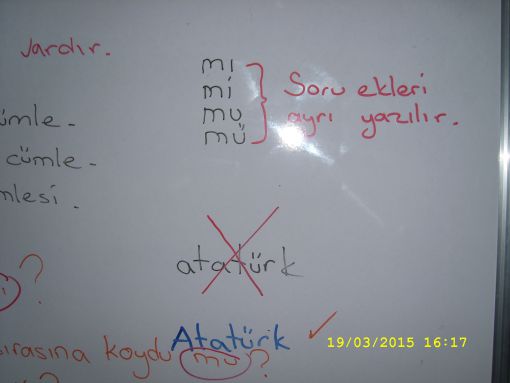 vardır.
mı
mi
mu
mü
Soru ekleri
ayrı yazılır.
cümle.
mlesi.
atatürk
?
Atatürk ✓
sırasına koydu mu?
19/03/2015 16:17